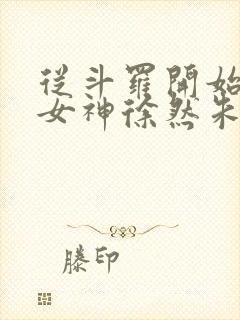 從斗羅開始
女神徐然朱
滕印